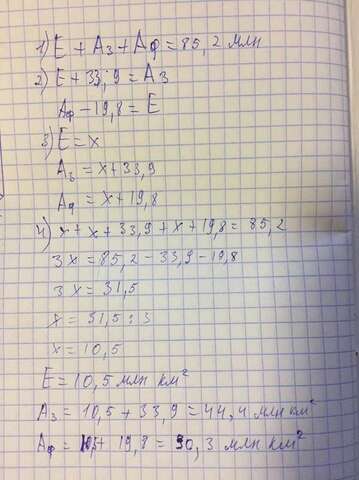 1) Е + Аз + Аф = 85,2 млн
2) Е + 33,9 = Аз
Аф - 19,8 = Е
3) Е = х
Аз = х + 33,9
Аф = х + 19,8
4) х + х + 33,9 + х + 19,8 = 85,2
3х = 85,2 - 33,9 - 19,8
3х = 31,5
х = 31,5 : 3
х = 10,5
Е = 10,5 млн км²
Аз = 10,5 + 33,9 = 44,4 млн км²
Аф = 10,5 + 19,8 = 30,3 млн км²